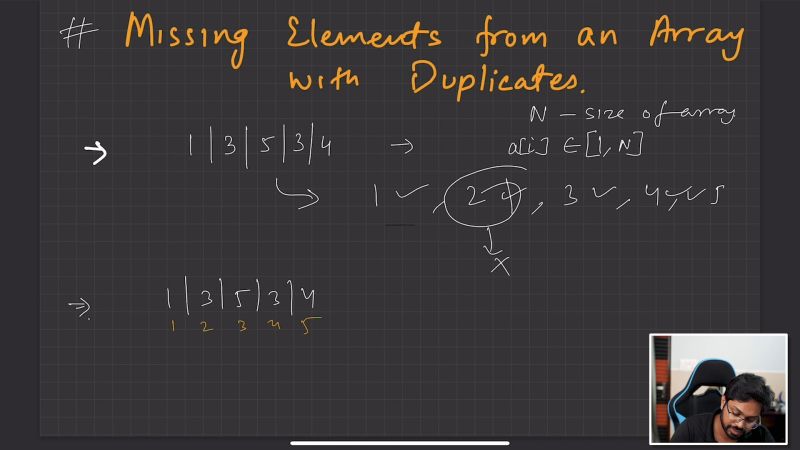 # Missing Elements from an Array
with Duplicates.
N - size of array
→ 1 | 3 | 5 | 3 | 4 → a[i] ∈ [1, N]
1 ✓, 2, 3 ✓, 4 ✓, 5
x
→ 1 | 3 | 5 | 3 | 4
1 2 3 4 5